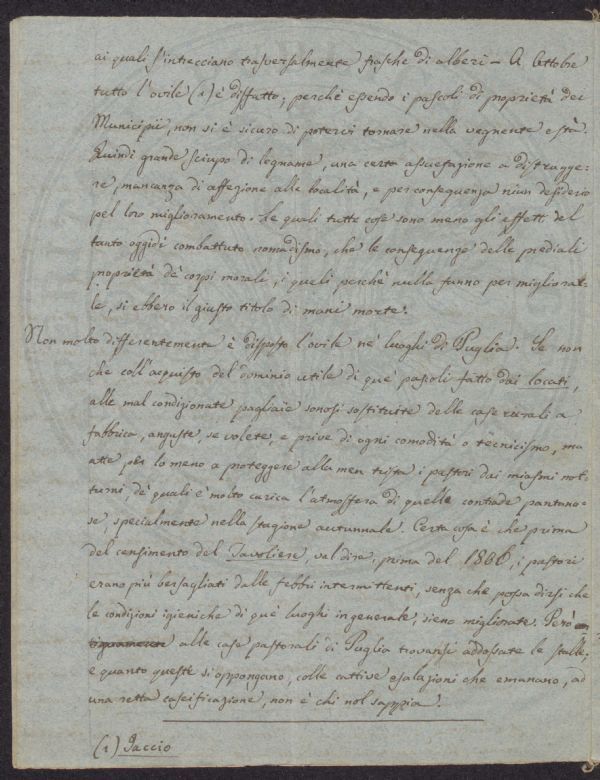 ai quali s'intrecciano trasversalmente frasche di alberi — A Ottobre
tutto l'ovile (1) è disfatto; perchè essendo i pascoli di proprietà dei
Municipii, non si è sicuro di potervi tornare nella vegnente està.
Quindi grande sciupo di legname, una certa assuefazione a distrugge-
re, mancanza di affezione alle località, e per conseguenza niun desiderio
pel loro miglioramento. Le quali tutte cose sono meno gli effetti del
tanto oggidì combattuto nomadismo, che le conseguenze delle prediali
proprietà de' corpi morali, i quali, perchè nulla fanno per migliorar-
le, si ebbero il giusto titolo di mani morte.
Non molto differentemente è disposto l'ovile ne' luoghi di Puglia. Se non
che coll'acquisto del dominio utile di que' pascoli fatto dai locati,
alle mal condizionate pagliaie sonosi sostituite delle case rurali a
fabbrica, anguste, se volete, e prive di ogni comodità o tecnicismo, ma
atte per lo meno a proteggere alla men trista i pastori dai miasmi not-
turni, de' quali è molto carica l'atmosfera di quelle contrade pantano-
se, specialmente nella stagione autunnale. Certa cosa è che prima
del censimento del Tavoliere, val dire, prima del 1866, i pastori
erano più bersagliati dalle febbri intermittenti, senza che possa dirsi che
le condizioni igieniche di que' luoghi in generale, sieno migliorate. Però
alle case pastorali di Puglia trovansi addossate le stalle;
e quanto queste si oppongano, colle cattive esalazioni che emanano, ad
una retta caseificazione, non è chi nol sappia.
(1) Jaccio